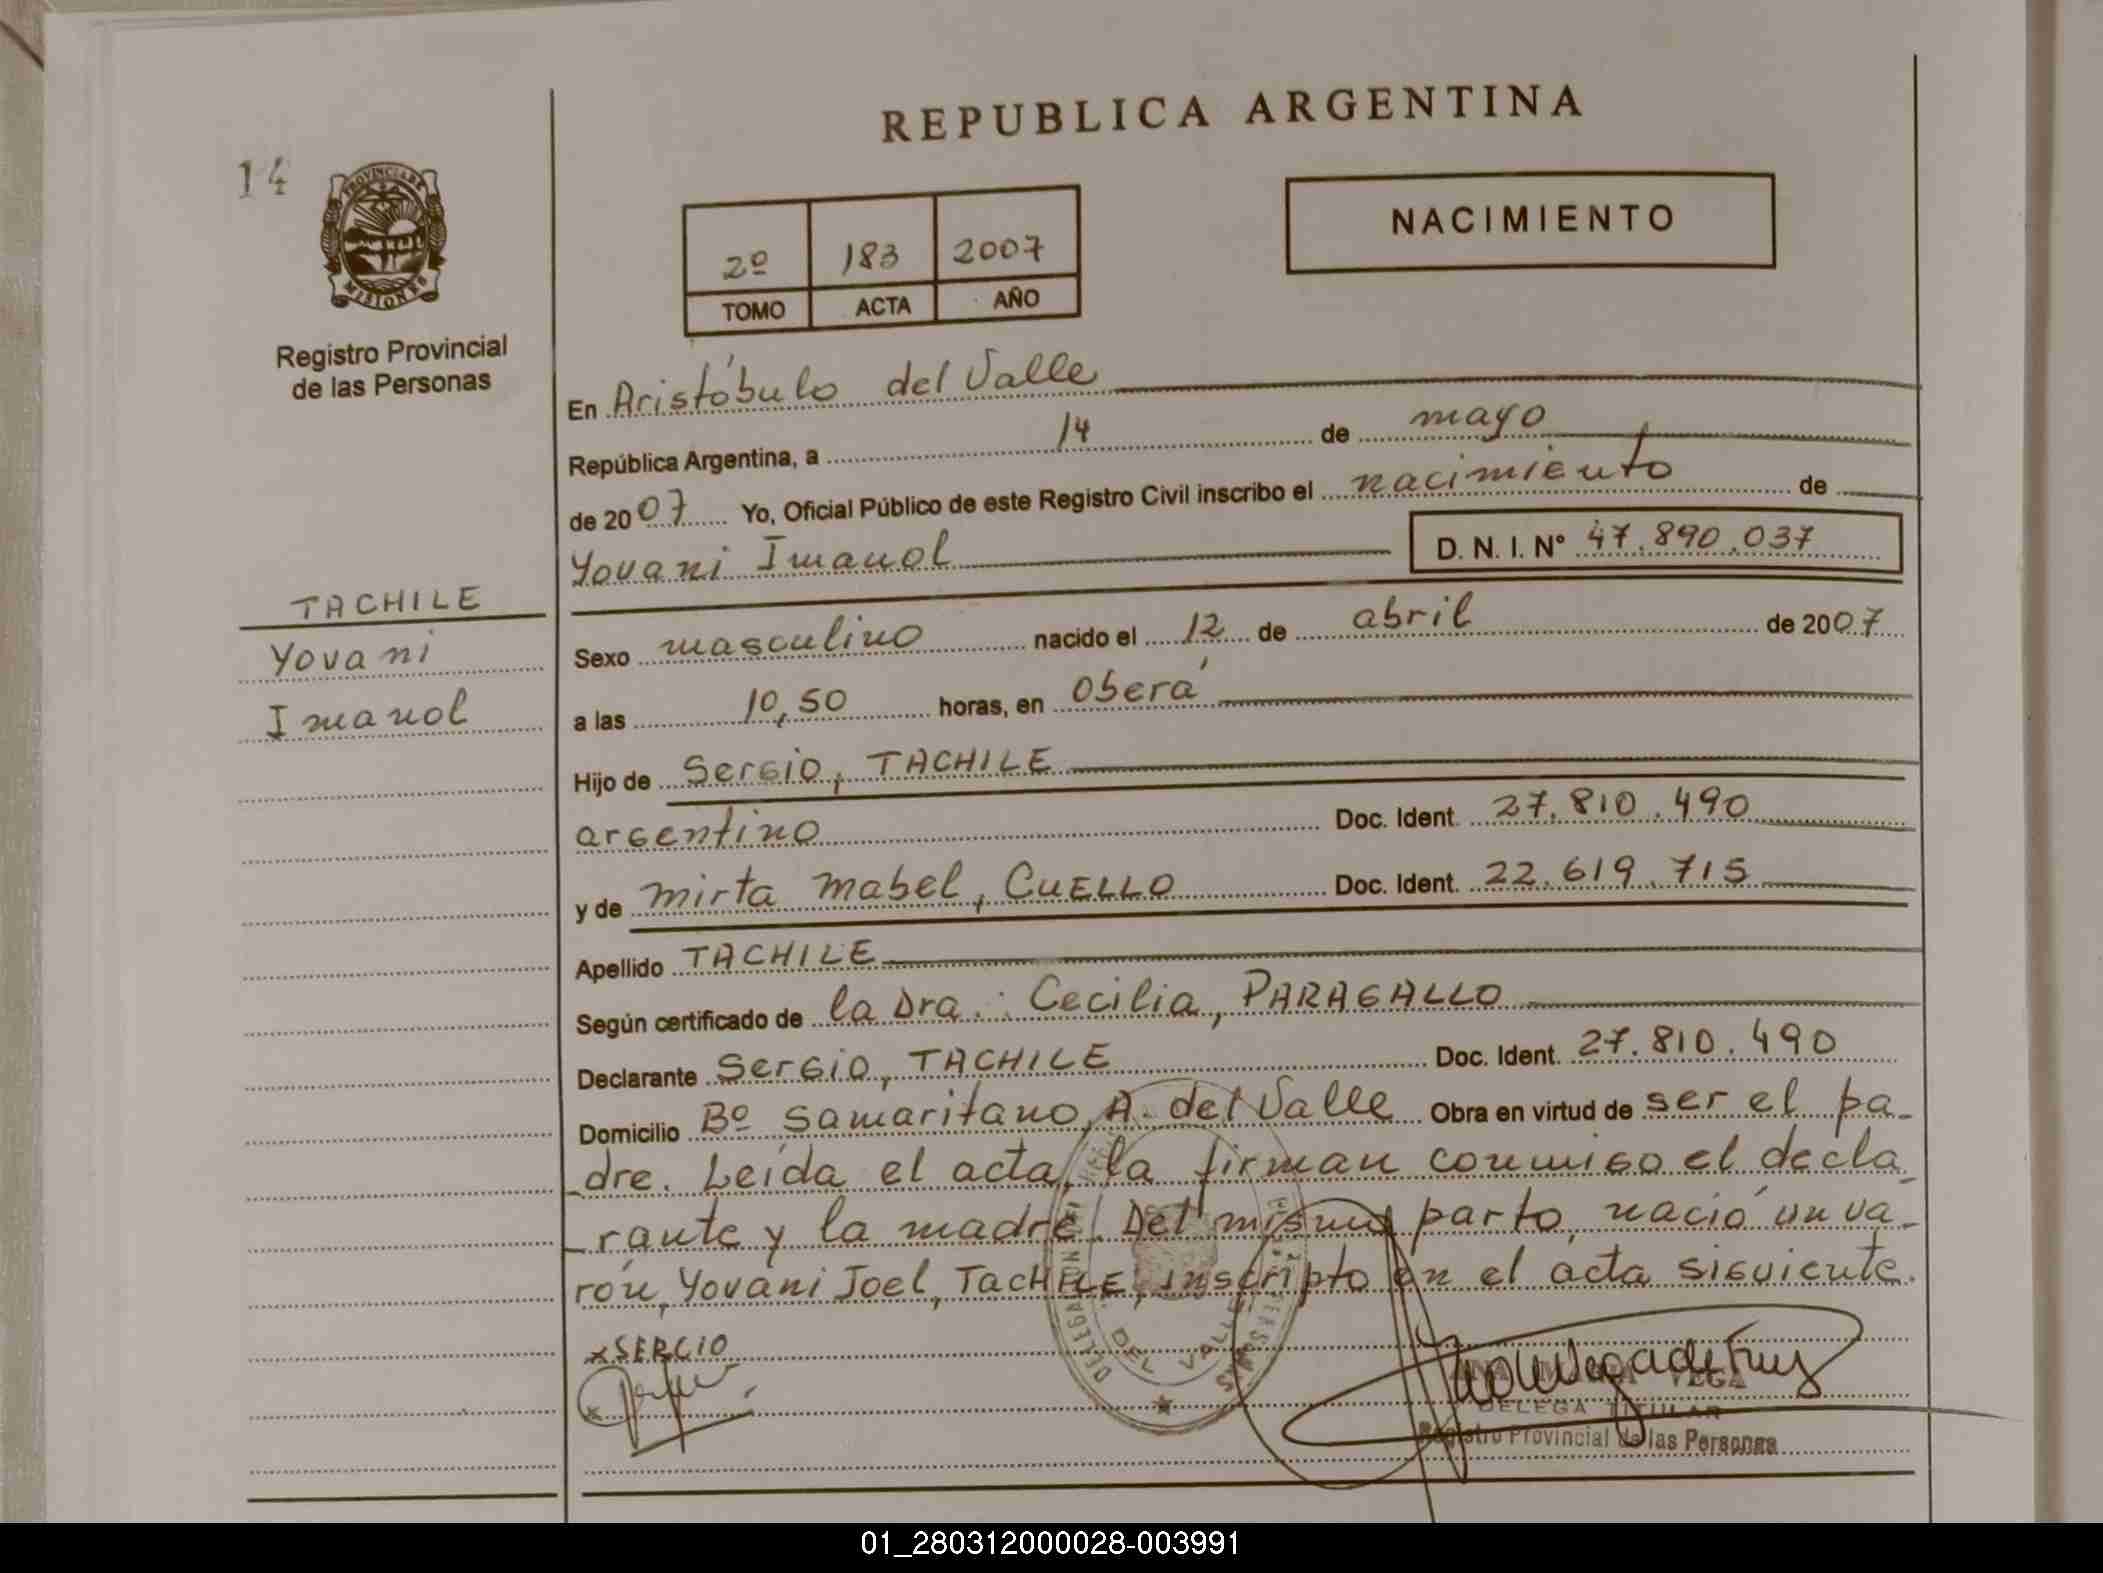 REPUBLICA ARGENTINA
14
PROVINCIA DE
MISIONES
Registro Provincial
de las Personas
2º 183 2007
TOMO ACTA AÑO
NACIMIENTO
En Aristóbulo del Valle
República Argentina, a 14 de mayo
de 2007 Yo, Oficial Público de este Registro Civil inscribo el nacimiento de
Yovani Imanol D. N. I. Nº 47.890.037
TACHILE
Yovani
Imanol
Sexo masculino nacido el 12 de abril de 2007
a las 10,50 horas, en Oberá
Hijo de Sergio, TACHILE
argentino Doc. Ident. 27.810.490
y de Mirta Mabel, CUELLO Doc. Ident. 22.619.715
Apellido TACHILE
Según certificado de la Dra.: Cecilia, PARAGALLO
Declarante Sergio, TACHILE Doc. Ident. 27.810.490
Domicilio Bº Samaritano, A. del Valle Obra en virtud de ser el pa-
dre. Leída el acta, la firman conmigo el decla-
rante y la madre. Del mismo parto, nació un va-
rón, Yovani Joel, TACHILE, inscripto en el acta siguiente.
x SERGIO
x
DEL VALLE
VEGA
DELEGA TITULAR
Registro Provincial de las Personas
01_280312000028-003991